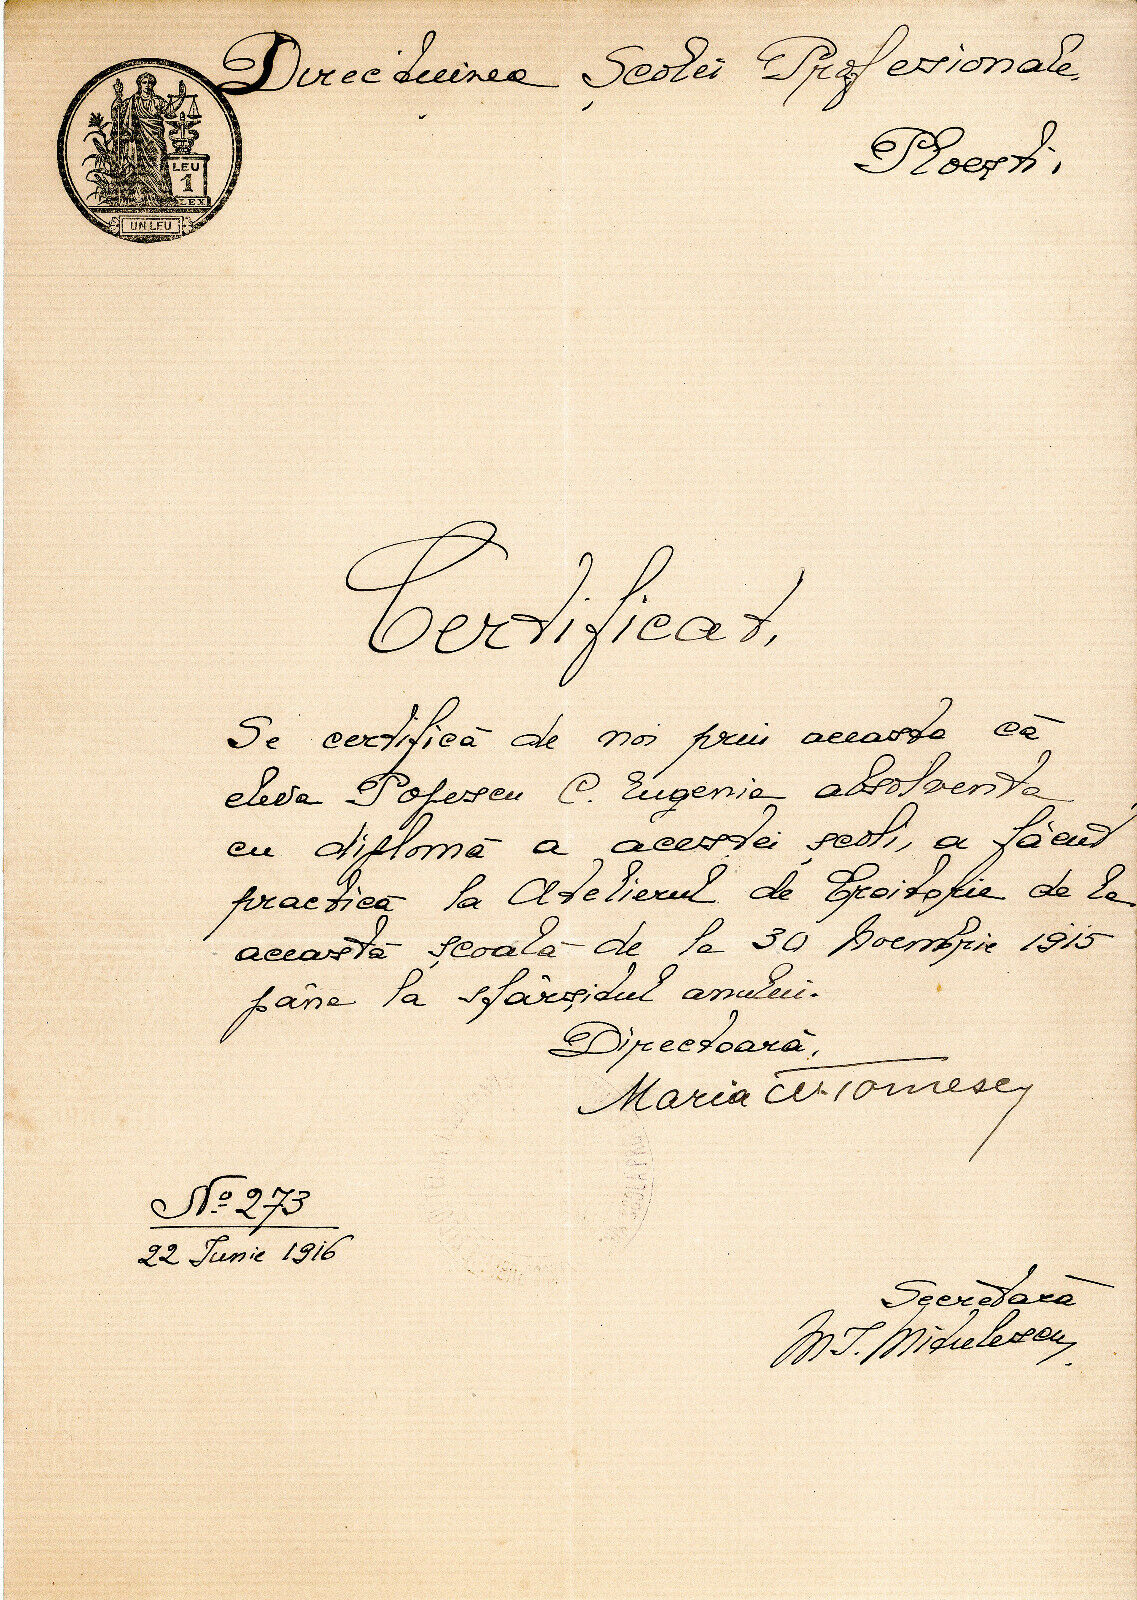 Direcțiunea Școlei Profesionale
Ploești.
LEU
1
LEX
UN LEU
Certificat,
Se certifică de noi prin aceasta că
eleva Popescu C. Eugenia absolventa
cu diplomă a acestei școli, a făcut
practică la Atelierul de Croitorie de la
această școală de la 30 Noembrie 1915
până la sfârșitul anului.
Directoară,
Maria Tomescu
No 273
22 Iunie 1916
Secretară
M I. Nițulescu